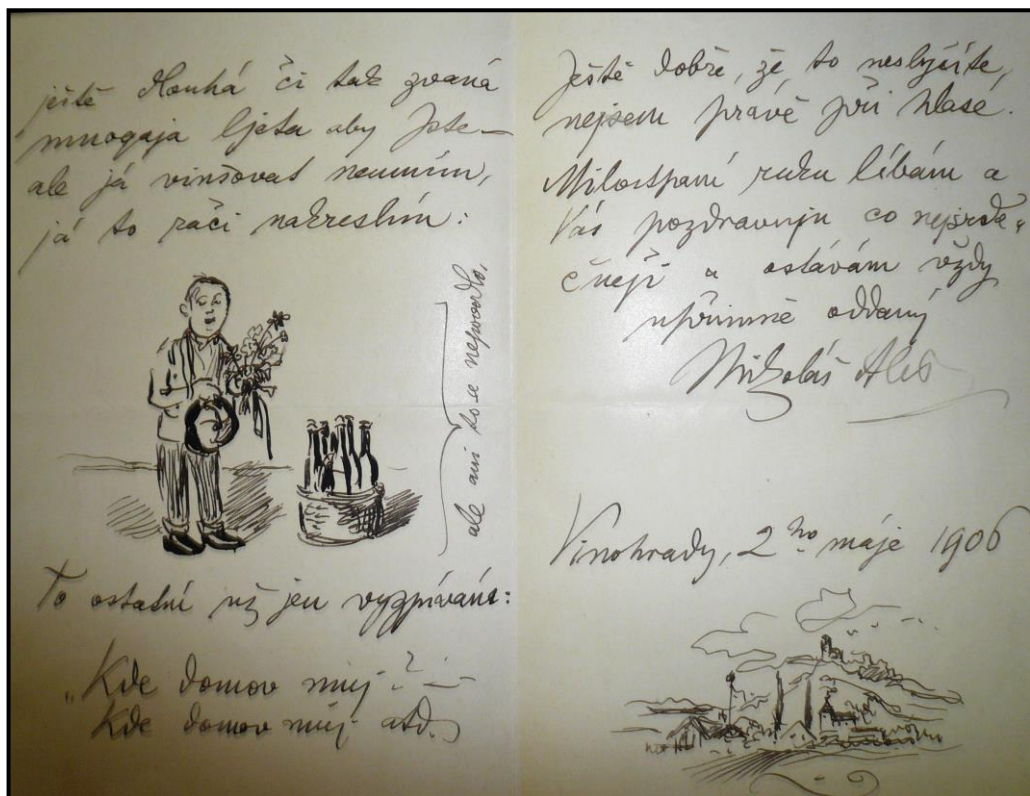 ještě dlouhá či tak zvaná
mnogaja ljeta aby jste —
ale já vinšovat neumím,
já to ráči nakreslím:
ale ani to se nepovedlo,
To ostatní už jen vyzpívám:
„Kde domov můj? —
Kde domov můj atd.
Ještě dobře, že to neslyšíte,
nejsem právě při hlase.
Milostpaní ruku líbám a
Vás pozdravuju co nejsrde„
čněji a ostávám vždy
upřímně oddaný
Mikoláš Aleš
Vinohrady, 2ho máje 1906